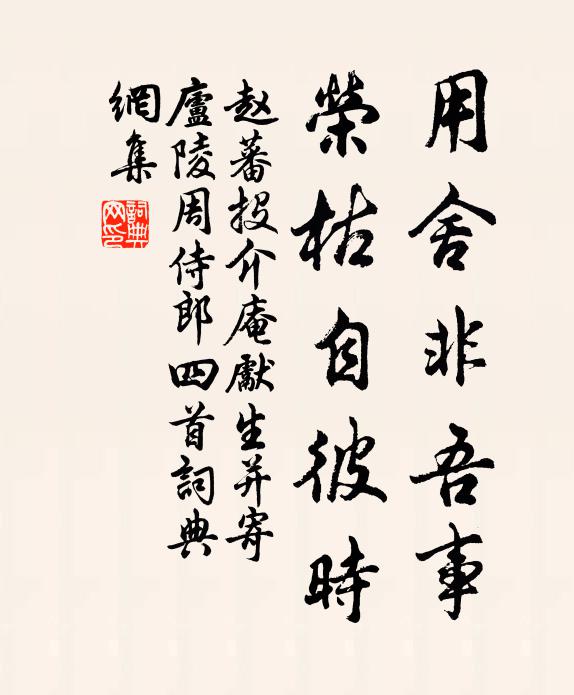 用舍非吾事
榮枯自彼時
赵蕃投介庵獻生并寄
廬陵周侍郎四首詞典
網集
詞典網印